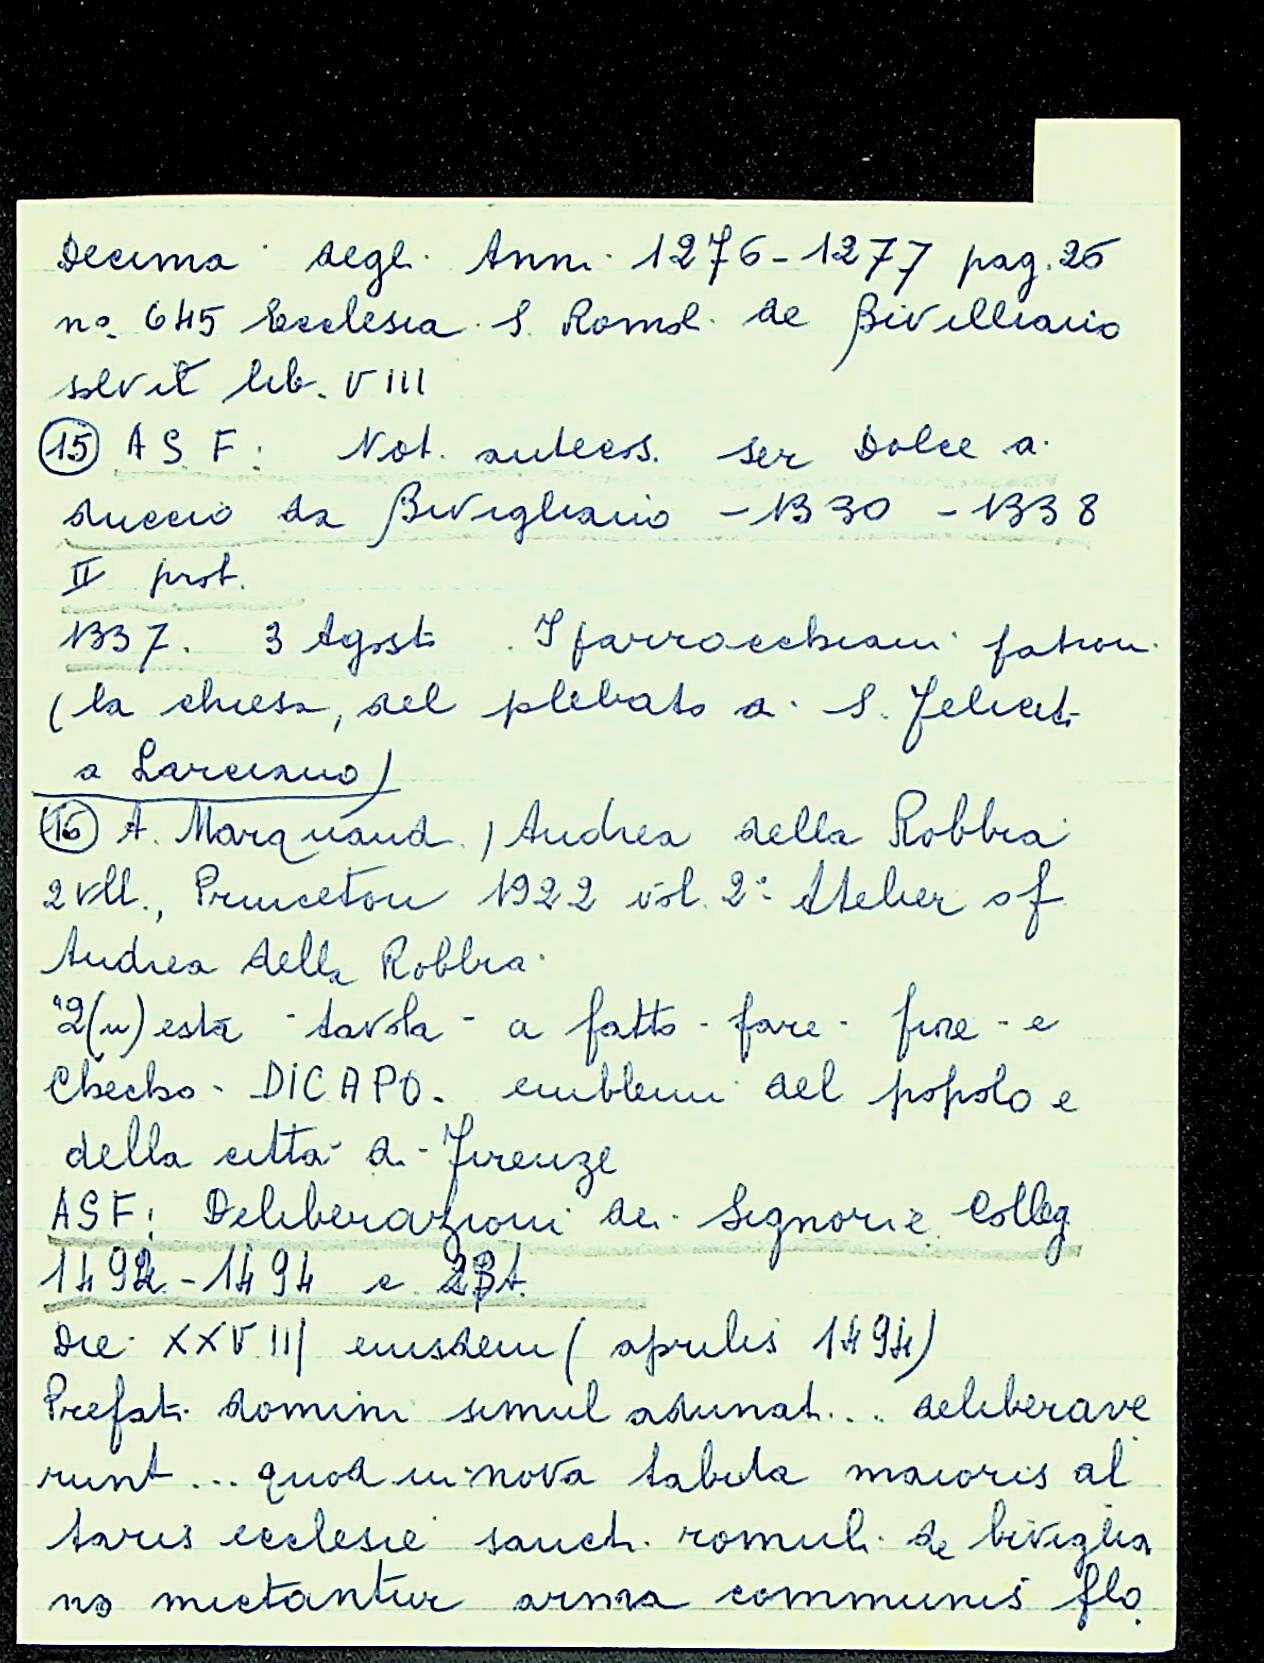 Decima degli Anni 1276-1277 pag. 26
n° 645 Ecclesia S. Romol. de Bivilliano
solvit lib. VIII
(15) ASF: Not. antecos. ser Dolce di
Duccio da Bivigliano - 1330 - 1338
II prot.
1337. 3 Agosto. I parrocchiani patroni
(la chiesa, del plebato di S. Felicit.
a Larciano)
(16) A. Marquand, Andrea della Robbia
2 vll., Princeton 1922 vol. 2° Atelier of
Andrea della Robbia.
"Q(u)esta - tavola - a fatto - fare - fire - e
Checho - DICAPO. emblemi del popolo e
della città di Firenze
ASF: Deliberazioni dei Signori e Colleg
1492-1494 c.
Die XXVIII eiusdem (aprilis 1494)
Prefati domini simul adunati... deliberave
runt ... quod in nova tabula maioris al
taris ecclesie sancti romuli de biviglia
no mictantur arma communis flo